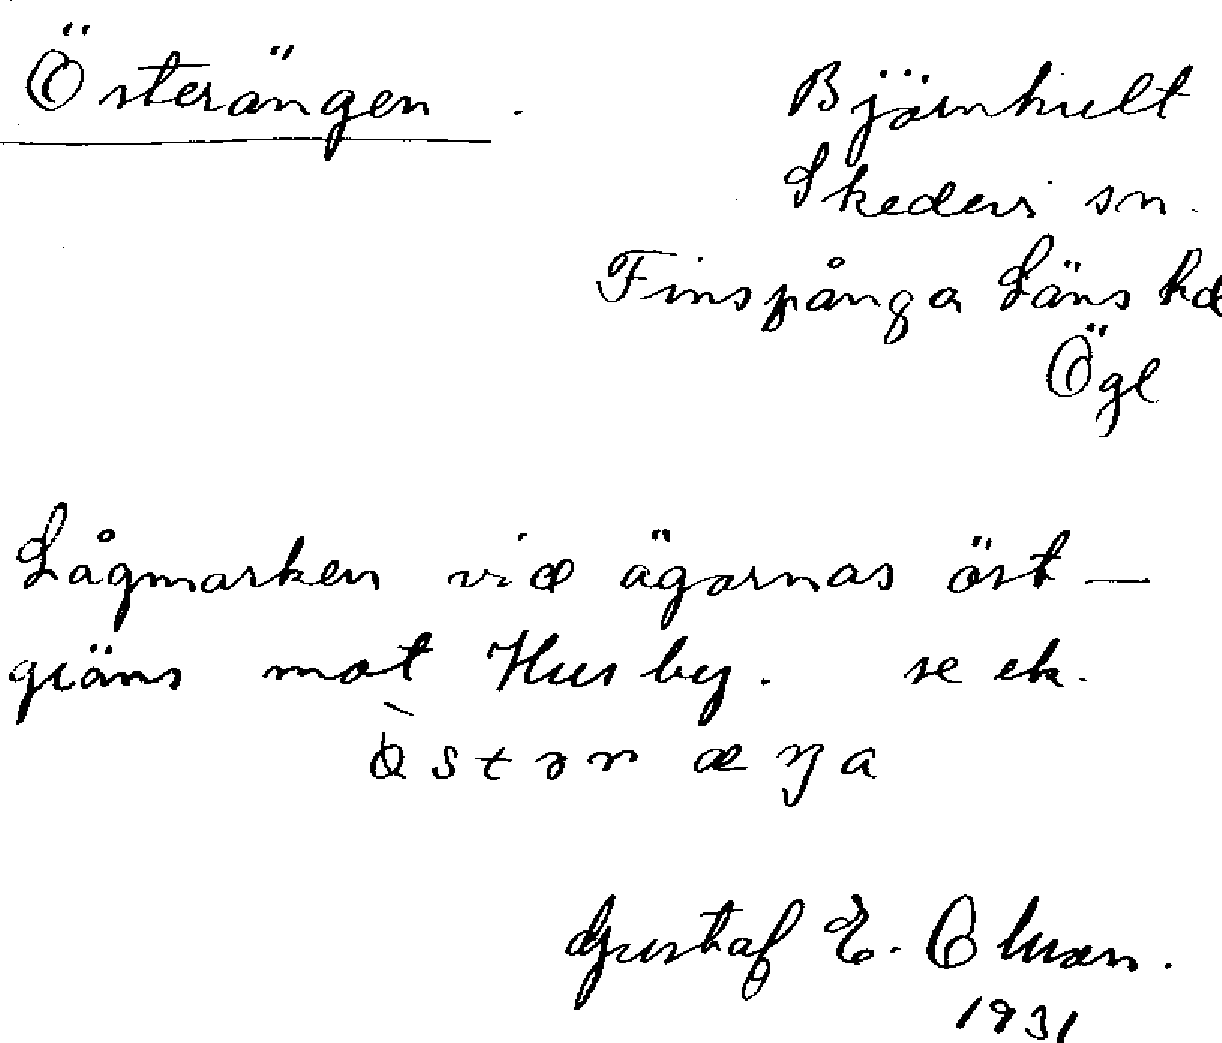 Österängen.
Björnhult
Skedevi sn.
Finspånga Läns hd
Ögl
Lågmarken vid ägornas öst-
gräns mot Husby. se ek.
Gustaf E. Olsson.
1931